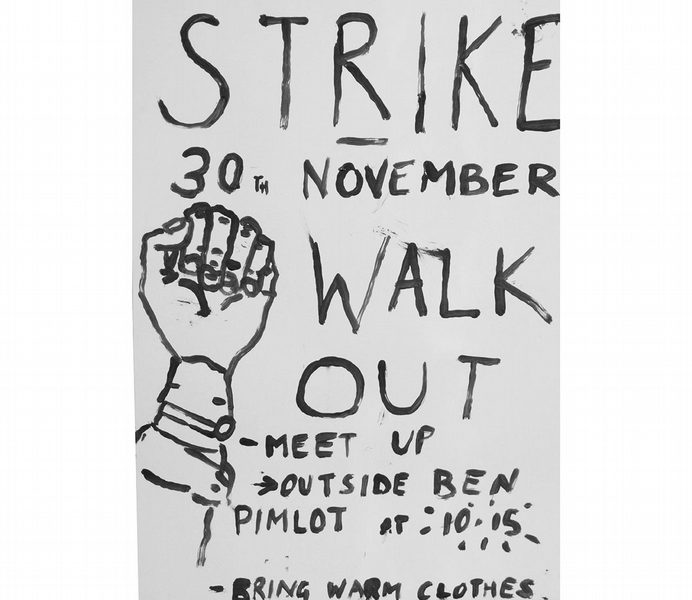 STRIKE
30TH NOVEMBER
WALK
OUT
-MEET UP
→OUTSIDE BEN
PIMLOT AT : 10.15
-BRING WARM CLOTHES